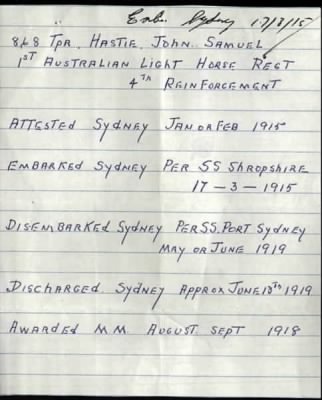 Emb. Sydney 17/3/15
868 Tpr. Hastie. John. Samuel
1st Australian Light Horse Regt
4th Reinforcement
Attested Sydney Jan or Feb 1915
Embarked Sydney Per SS Shropshire
17-3-1915
Disembarked Sydney Per SS. Port Sydney
May or June 1919
Discharged Sydney Approx June 13th 1919
Awarded M.M. August. Sept 1918